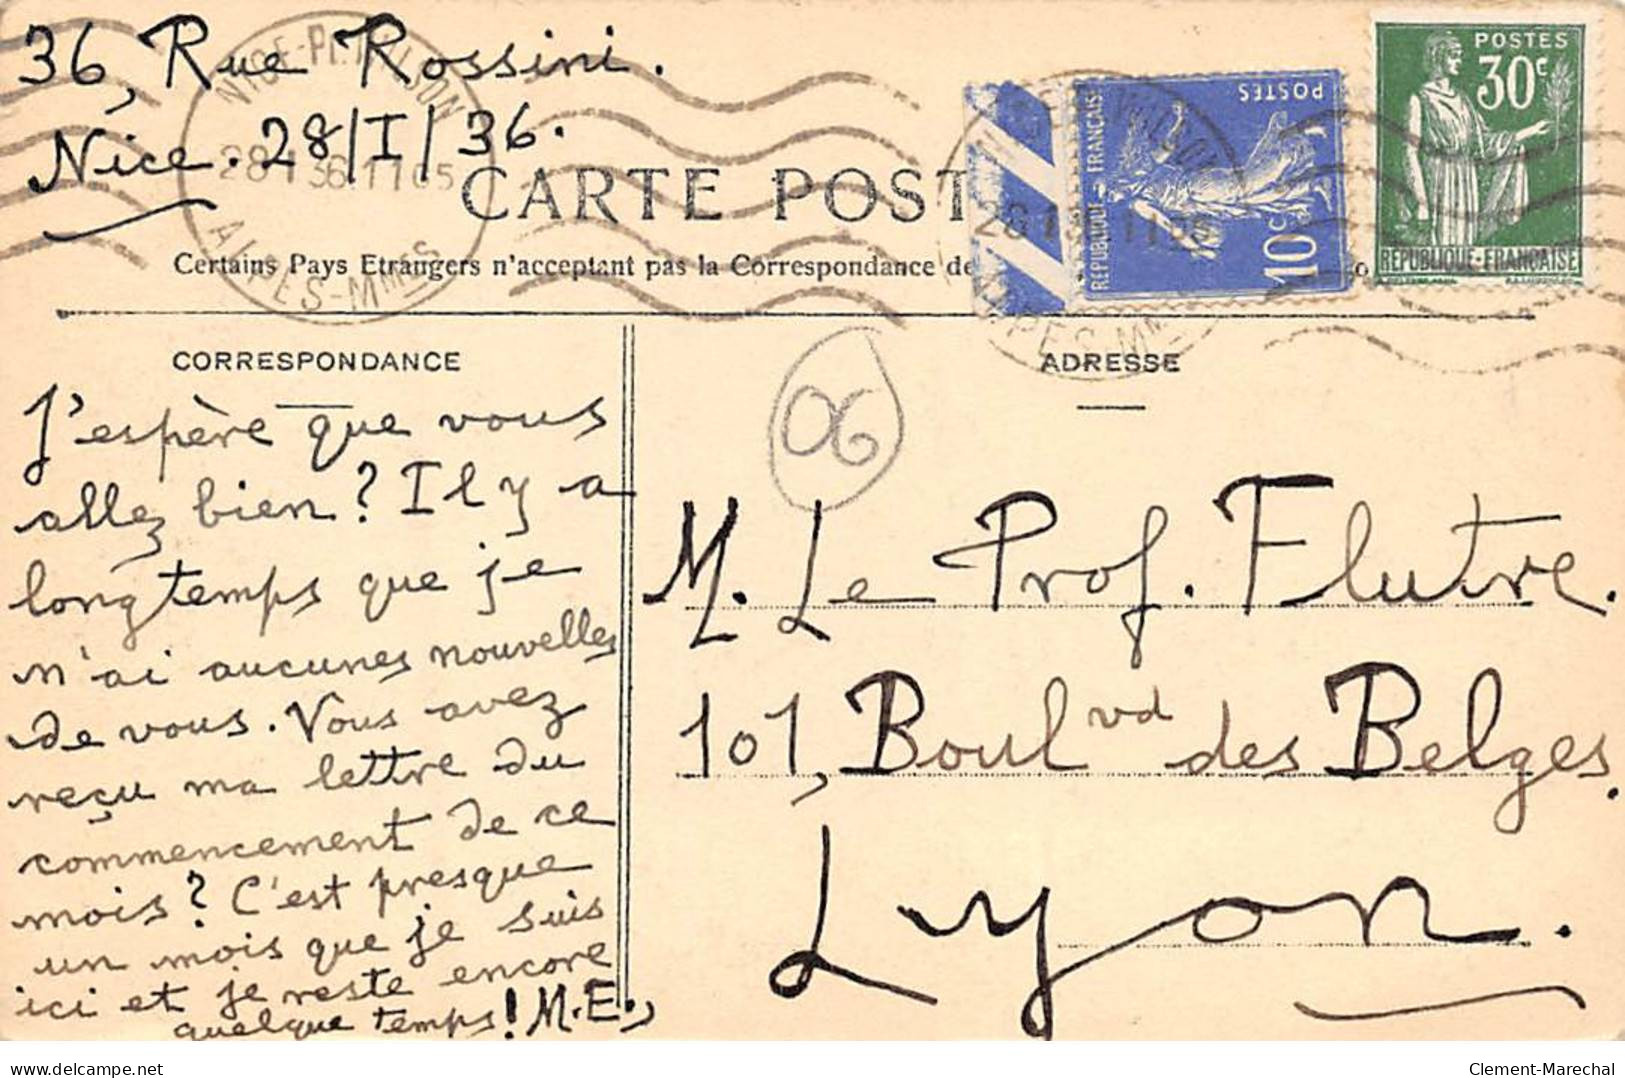 36, Rue Rossini.
Nice. 28/I/36.
CARTE POST
Certains Pays Etrangers n'acceptant pas la Correspondance de
POSTES
30c
REPUBLIQUE-FRANCAISE
POSTES
REPUBLIQUE FRANÇAISE
10c
28 I 36 11 05
ALPES-MMES
CORRESPONDANCE
J'espère que vous
allez bien? Il y a
longtemps que je
n'ai aucunes nouvelles
de vous. Vous avez
reçu ma lettre du
commencement de ce
mois? C'est presque
un mois que je suis
ici et je reste encore
quelque temps! M.E.,
ADRESSE
06
M. Le Prof. Flutre.
101, Boulvd des Belges.
Lyon.
www.delcampe.net
Clement-Marechal